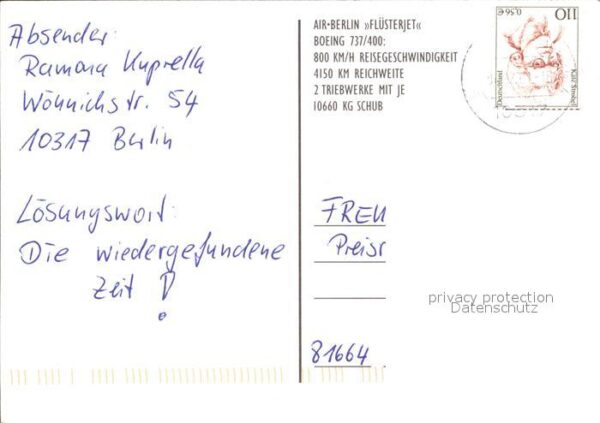 Absender:
Ramona Kuprella
Wönnichstr. 54
10317 Berlin
Lösungswort:
Die wiedergefundene
Zeit!
AIR-BERLIN »FLÜSTERJET«
BOEING 737/400:
800 KM/H REISEGESCHWINDIGKEIT
4150 KM REICHWEITE
2 TRIEBWERKE MIT JE
10660 KG SCHUB
110
0,56 €
Deutschland
Käte Strobel
FREU
Preisr
81664
privacy protection
Datenschutz